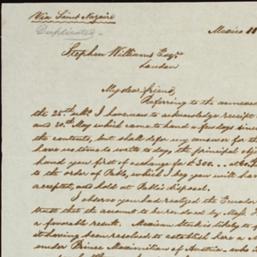 Via Saint Nazaire
Duplicate
Mexico 11
Stephen Williams Esqr.
London
My dear friend,
Referring to the annexed
the 25th ulto. I have now to acknowledge receipt
and 20th May which came to hand a few days since
the country, but shall defer my answer for the
have no time to write to day the principal
hand you first of exchange for £300
to the order of Pablo, which I beg you will have
accepted, and hold at Pablo's disposal.
I observe you had realized the Ecuador
trust that the account to be rendered by Messrs.
a favorable result. Mexican Stock is likely to
it having been resolved to establish here a
under Prince Maximilian of Austria, who